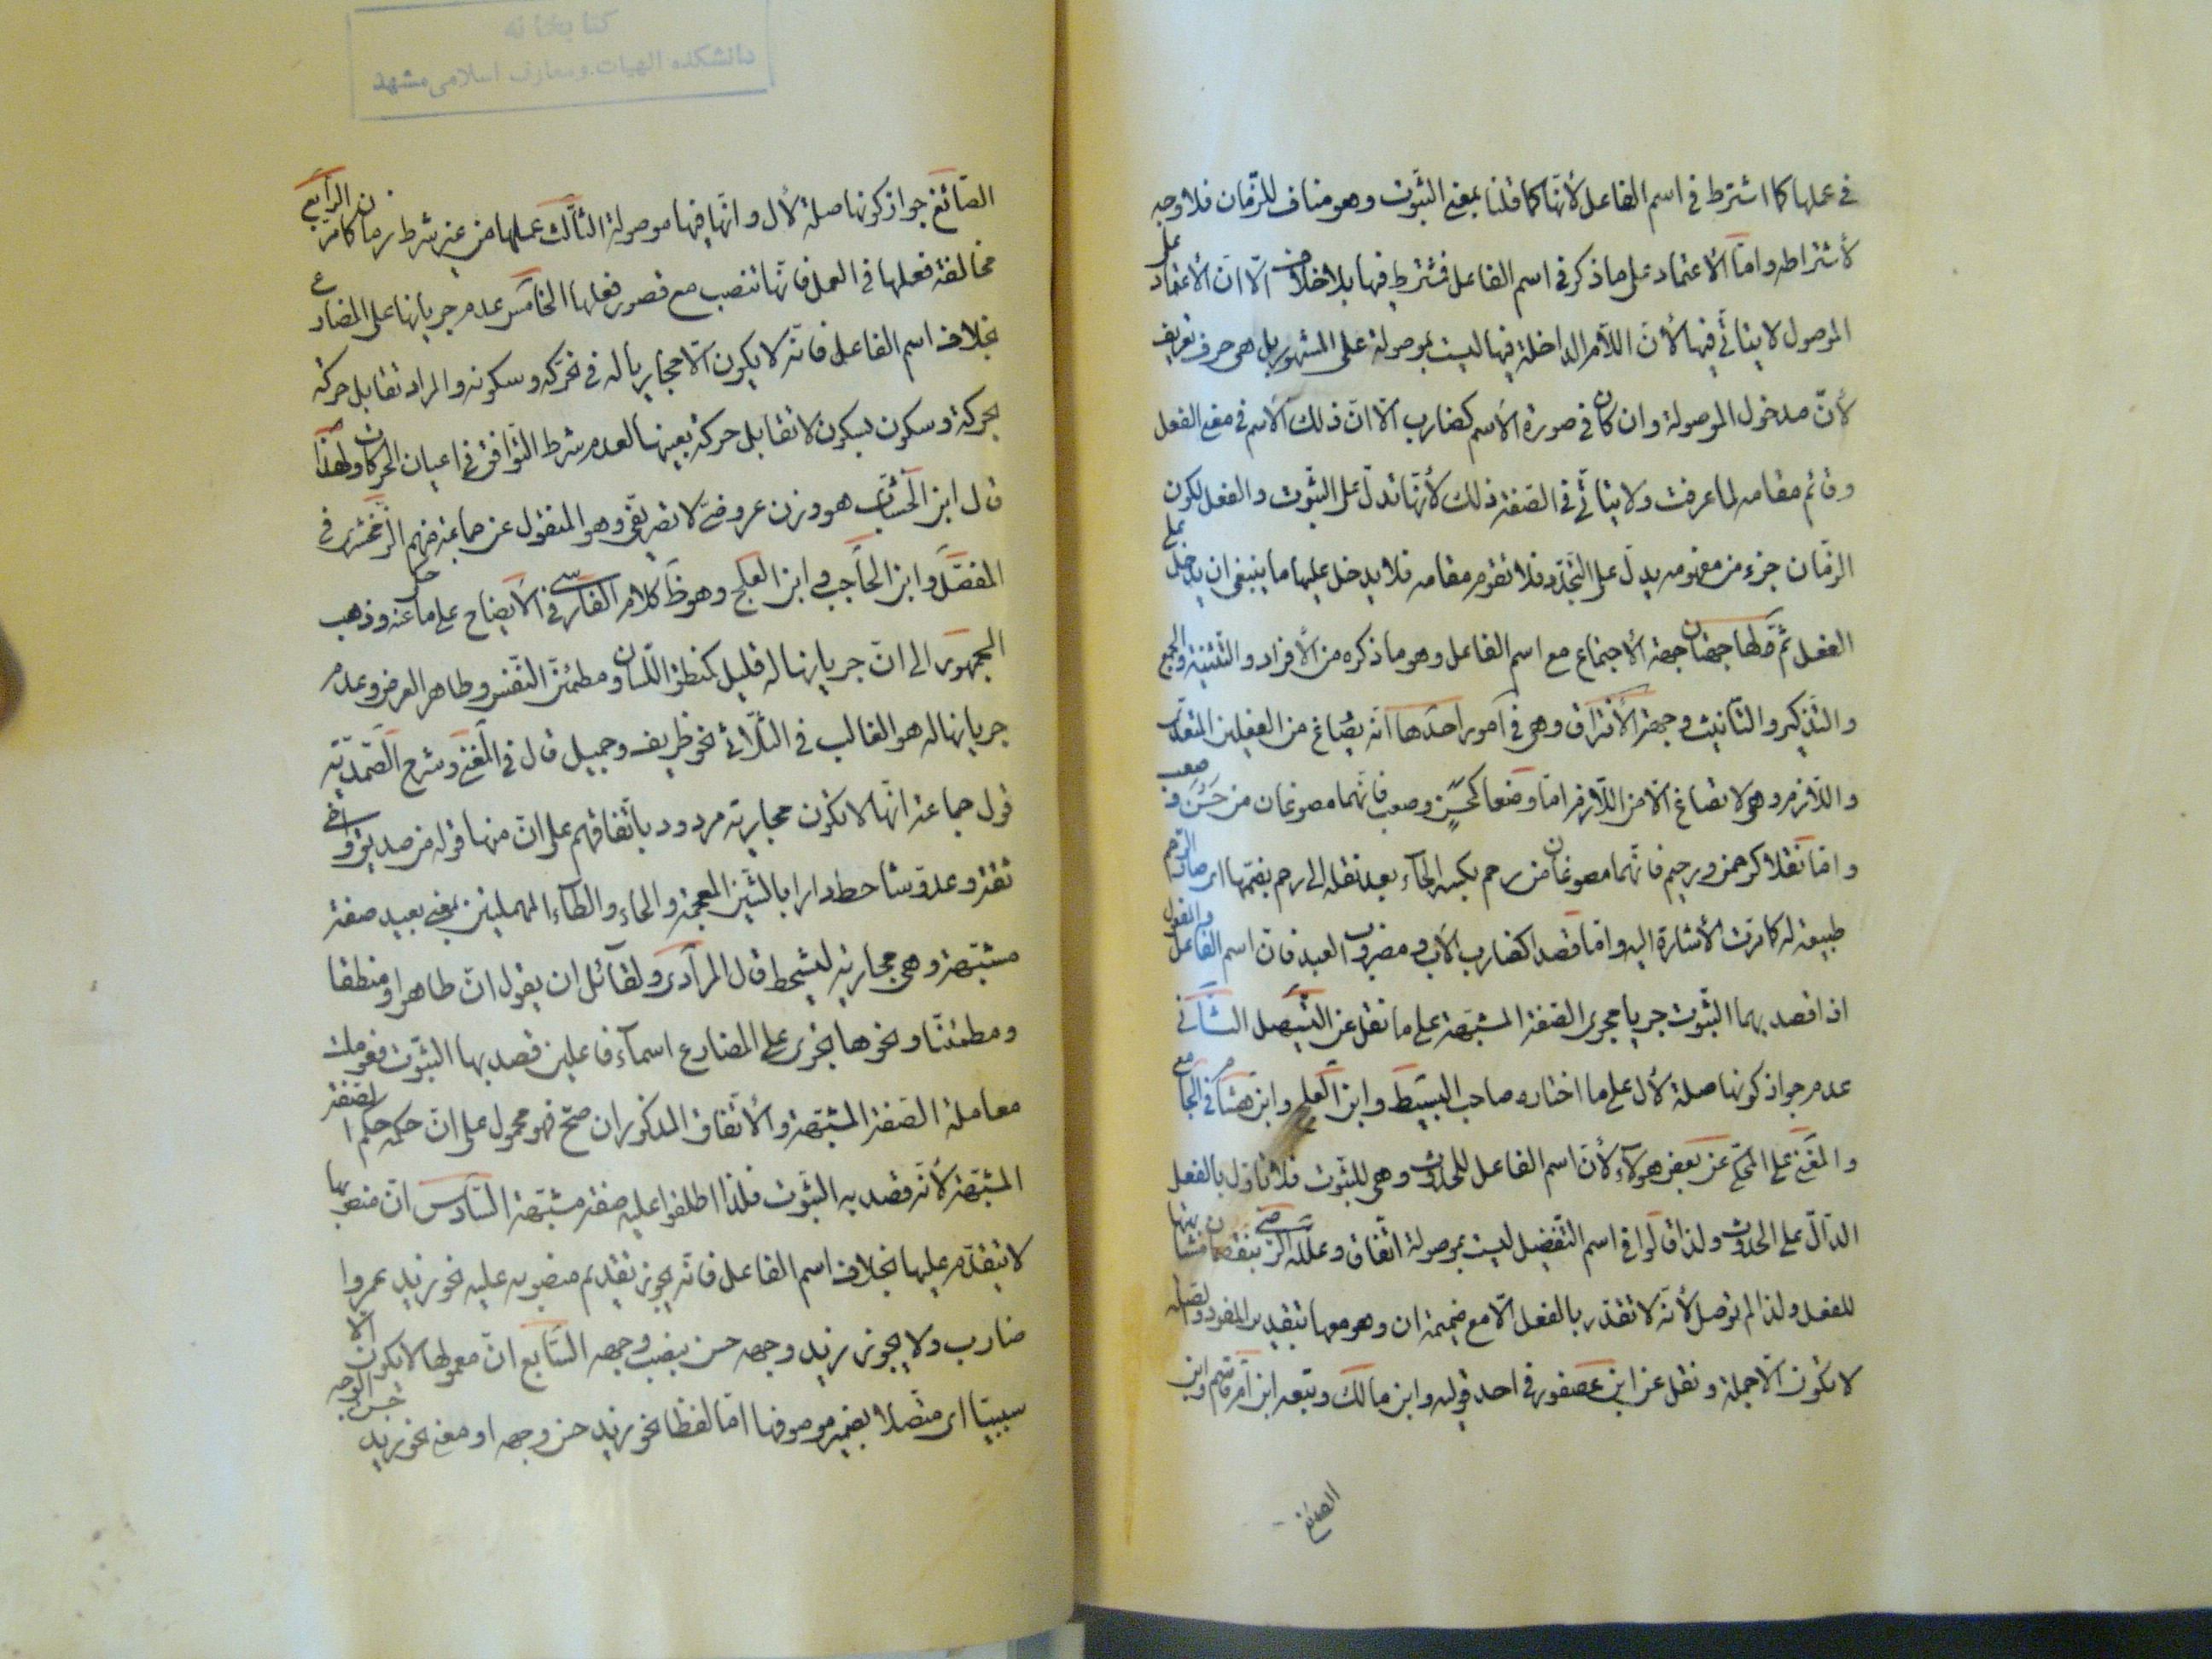 في عملها كما اشترط في اسم الفاعل لأنّها كما قلنا بمعنى الثبوت وهو مناف للزّمان فلا وجه
لأشتراطه وامّا الأعتماد على ما ذكر في اسم الفاعل فشرط فيها بلا خلاف الّا انّ الأعتماد على
الموصول لا يتأتّى فيها لأنّ اللّام الداخلة فيها ليست بموصولة على المشهور بل هى حرف تعريف
لأنّ مدخول الموصولة وان كان في صورة الاسم كضارب الّا انّ ذلك الاسم في معنى الفعل
وقائم مقامه لما عرفت ولا يتأتّى في الصّفة ذلك لأنّها تدلّ على الثبّوت والفعل لكون
الزّمان جزء من مفهومه يدلّ على التّجدّد فلا تقوم مقامه فلا يدخل عليها ما ينبغى ان يدخل على
الفعل ثمّ لها جهتان جهة الأجتماع مع اسم الفاعل وهو ما ذكره من الأفراد والتّثنية والجمع
والتّذكير والتّأنيث وجهة الأفتراق وهى في امور احدها انّه يصاغ من الفعلين المتعدّى
واللّازم وهى لا تصاغ الّا من اللّازم امّا وضعا كحسن وصعب فانّهما مصوغان من حسن وصعب
وامّا نقلا كرحمن ورحيم فانّهما مصوغان من رحم بكسر الحآء بعد نقله الى رحم بضمّها اى صار الرّحم
طبيعة له كما مرّت الأشارة اليه وامّا قصدا كضارب الأب ومضروب العبد فان اسم الفاعل والمفعول
اذا قصد بهما الثبّوت جريا مجرى الصّفة المشبّهة على ما نقل عن التّسهيل الثّانى
عدم جواز كونها صلة لأل على ما اختاره صاحب البسيط وابن العلج وابن هشام في الجامع
والمغنى على المحكى عن بعض هؤلآء لأنّ اسم الفاعل للحدوث وهى للثّبوت فلا تأوّل بالفعل
الدّالّ على الحدوث ولذا قالوا في اسم التّفضيل ليست بموصولة اتّفاق وعلّله الرّضى بنقصان مشابهتها
للفعل ولذا لم توصل لأنّه لا تقدّر بالفعل الّا مع ضميمة ان وهو معها بتقدير المفرد والصّلة
لا تكون الّا جملة ونقل عن ابن عصفور في احد قوليه وابن مالك وتبعه ابن امّ قاسم وابن
الصّائغ
كتابخانه
دانشكده الهيات ومعارف اسلامى مشهد
الصّائغ جواز كونها صلة لأل وانّها فيها موصولة الثّالث عملها من غير شرط زمان كامرّ الرّابع
مخالفة فعلها في العمل فانّها تنصب مع قصور فعلها الخامس عدم جريانها على المضارع
بخلاف اسم الفاعل فانّه لا يكون الّا مجاريا له في تحرّكه وسكونه والمراد تقابل حركة
بحركة وسكون بسكون لا تقابل حركة بعينها لعدم شرط التّوافق في اعيان الحركات ولهذا
قال ابن الخشّاب هو وزن عروضىّ لا تصريفىّ وهو المنقول عن جماعة منهم الزّمخشرى في
المفصّل وابن الحاجب وابن العلج وهو ظ كلام الفارسى في الايضاح على ما حكى عنه وذهب
الجمهور الى انّ جريانها له قليل كمنطلق اللّسان ومطمئنّ النّفس وطاهر العرض وعدم
جريانها له هو الغالب في الثّلاثى نحو ظريف وجميل قال في المغنى وشرح الصّمديّة
قول جماعة انّها لا تكون مجارية مردود باتّفاقهم على انّ منها قوله من صديق او اخى
ثقة وعدوّ شاحط دارا بالشّين المعجمة والحاء والطّآء المهملتين بمعنى بعيد صفة
مشبّهة وهى مجارية ليشحط قال المرادى ولقائل ان يقول انّ طاهرا ومنطلقا
ومطمئنّا ونحوها تجرى على المضارع اسمآء فاعلين قصد بها الثبّوت فعوملت
معاملة الصّفة المشبّهة والأتّفاق المذكور ان صحّ فهو محمول على انّ حكمه حكم الصّفة
المشبّهة لأنّه قصد به الثبّوت فلذا اطلقوا عليه صفة مشبّهة السّادس انّ منصوبها
لا يتقدّم عليها بخلاف اسم الفاعل فانّه يجوز تقديم منصوبه عليه نحو زيد عمروا
ضارب ولا يجوز زيد وجهه حسن بنصب وجهه السّابع انّ معمولها لا يكون الّا
سببيّا اى متّصلا بضمير موصوفها امّا لفظا نحو زيد حسن وجهه او معنى نحو زيد حسن الوجه